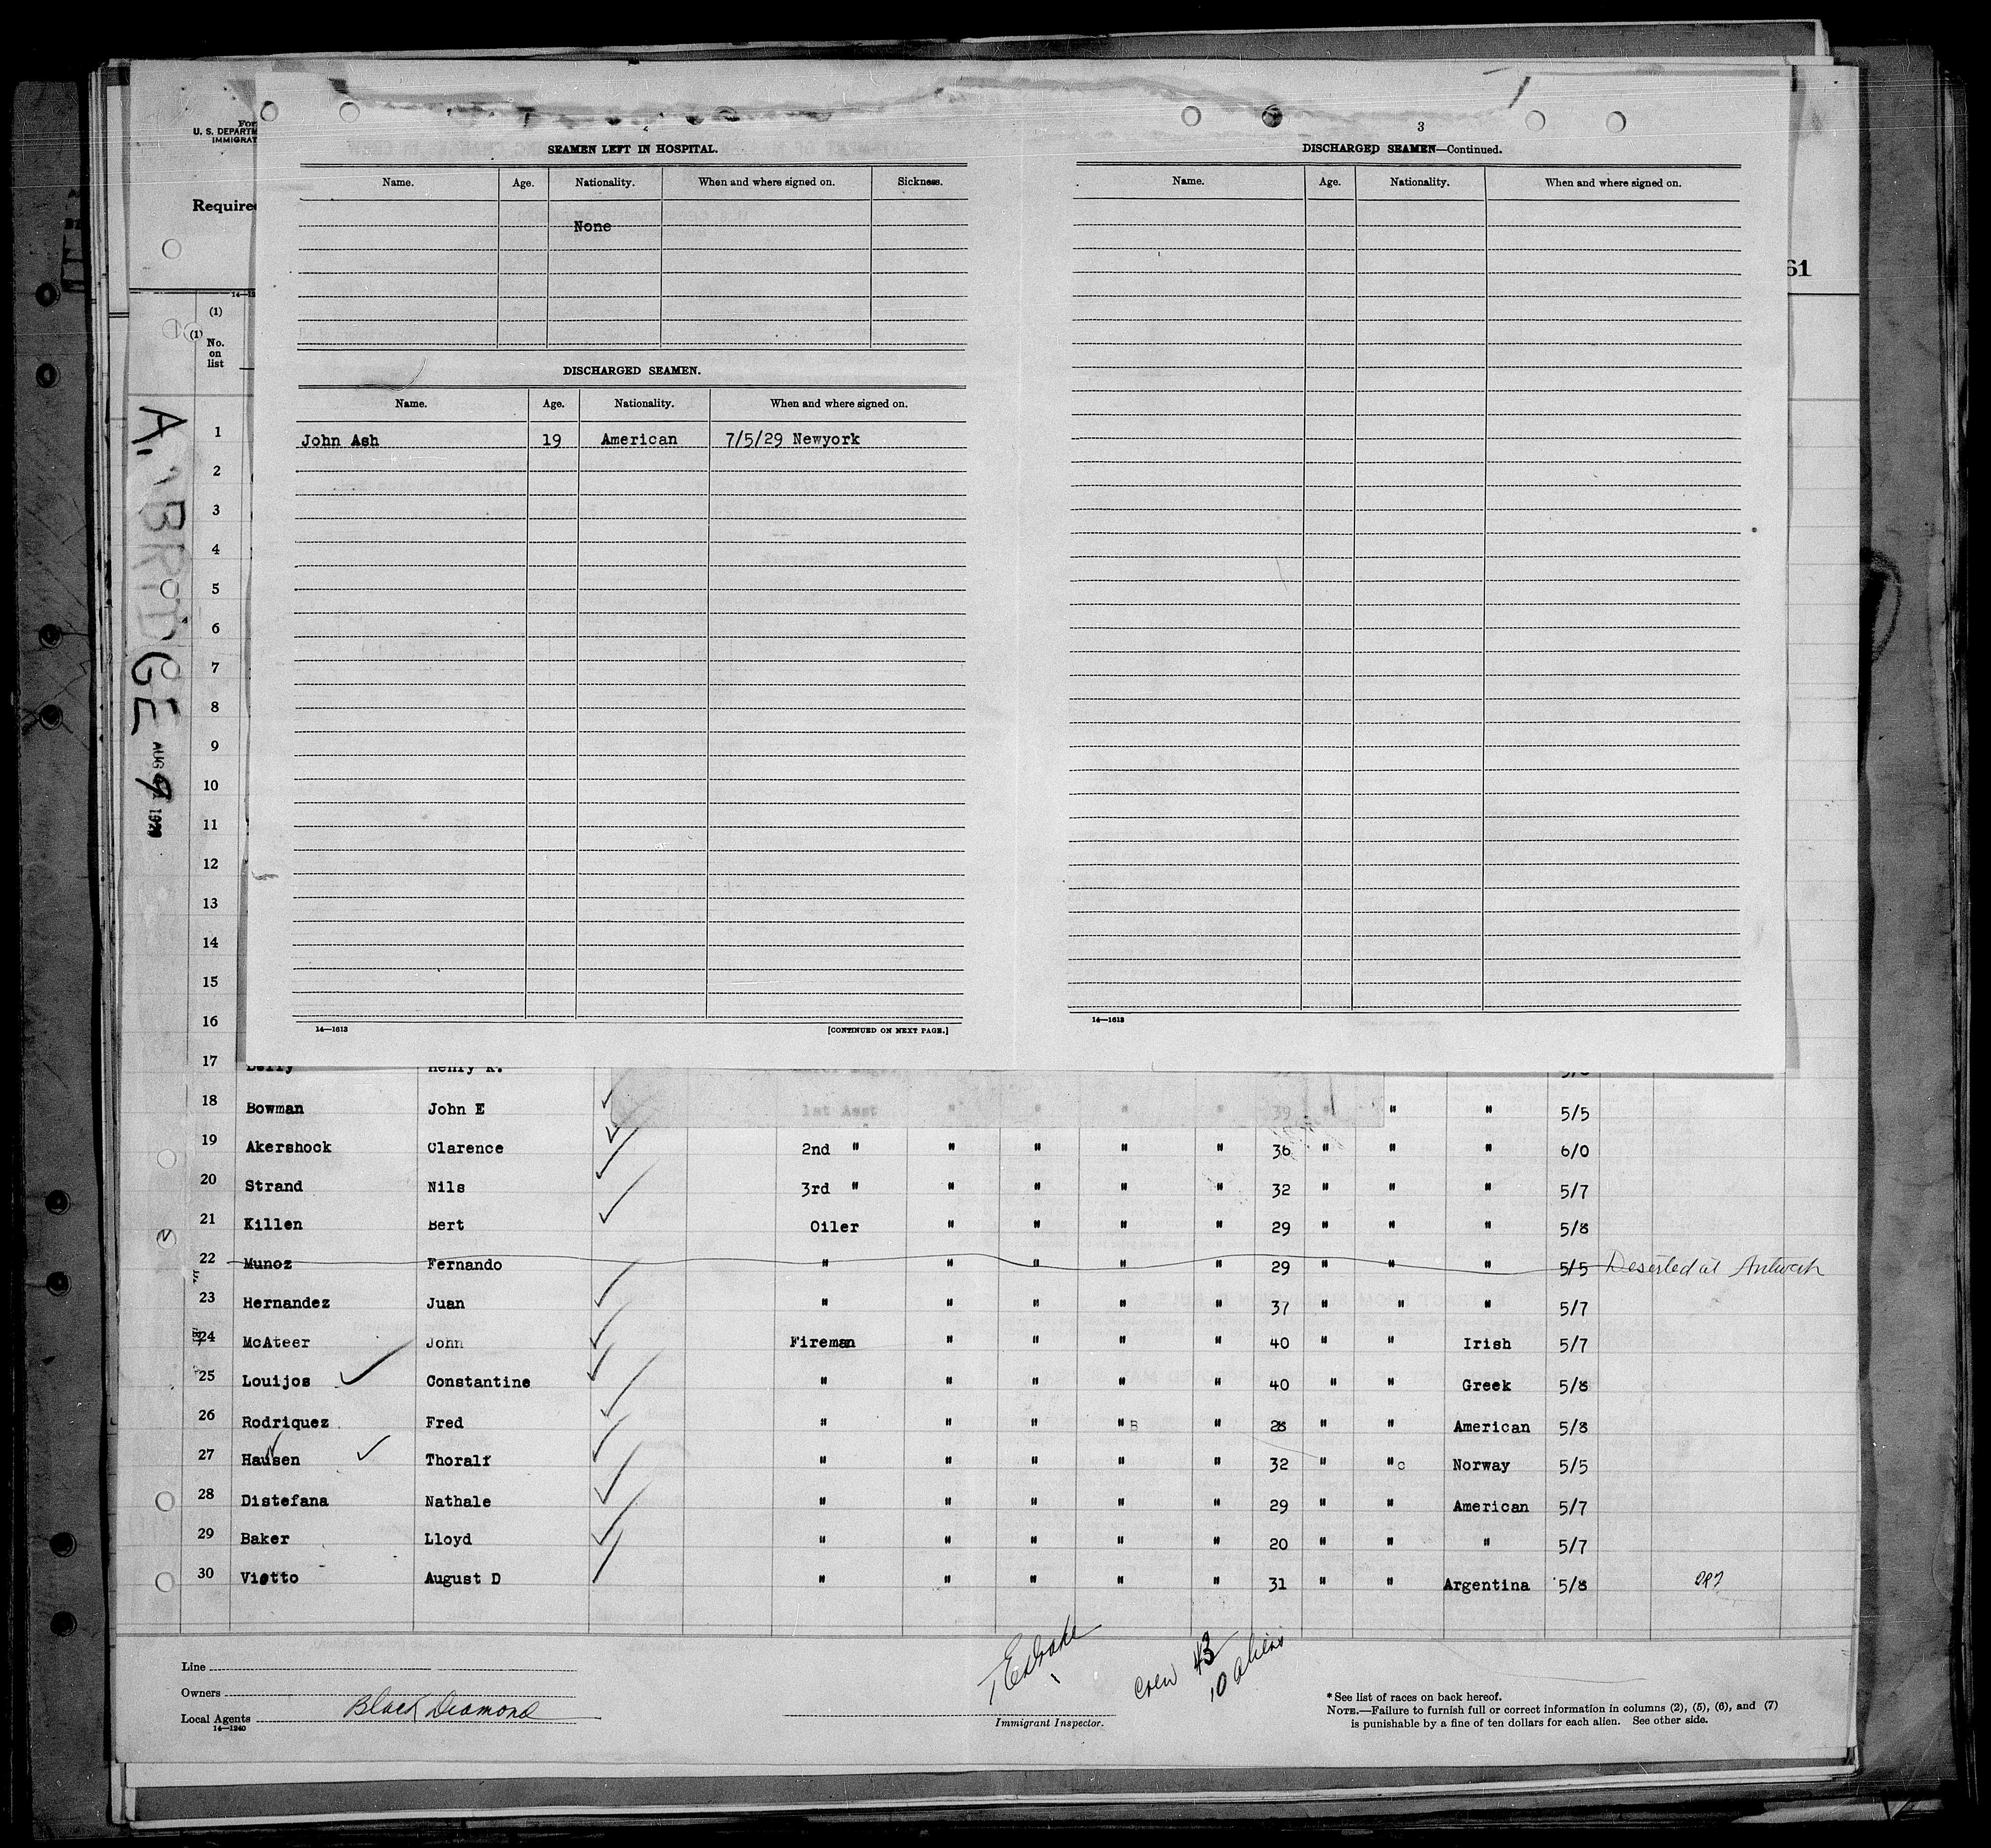 SEAMEN LEFT IN HOSPITAL.
Name. Age. Nationality. When and where signed on. Sickness.
None
DISCHARGED SEAMEN.
Name. Age. Nationality. When and where signed on.
John Ash 19 American 7/5/29 Newyork
14—1613 [CONTINUED ON NEXT PAGE.]
3
DISCHARGED SEAMEN—Continued.
Name. Age. Nationality. When and where signed on.
14—1613
U. S. DEPARTM
IMMIGRAT
Require
61
(1)
(1)
No.
on
list
A. BRIDGE
AUG 9
1
2
3
4
5
6
7
8
9
10
11
12
13
14
15
16
17 Henry K.
18 Bowman John E 1st Asst " " " " 39 " " " 5/5
19 Akershock Clarence 2nd " " " " " 36 " " " 6/0
20 Strand Nils 3rd " " " " " 32 " " " 5/7
21 Killen Bert Oiler " " " " 29 " " " 5/8
22 Munoz Fernando " " " " " 29 " " " 5/5 Deserted at Antwerp
23 Hernandez Juan " " " " " 37 " " " 5/7
24 McAteer John Fireman " " " " 40 " " Irish 5/7
25 Louijos Constantine " " " " " 40 " " Greek 5/8
26 Rodriquez Fred " " " " B " 28 " " American 5/8
27 Hausen Thoralf " " " " " 32 " " c Norway 5/5
28 Distefana Nathale " " " " " 29 " " American 5/7
29 Baker Lloyd " " " " " 20 " " " 5/7
30 Vietto August D " " " " " 31 " " Argentina 5/8
Line
Owners
Local Agents Black Diamond
14—1240
crew 43
10 aliens
Immigrant Inspector.
* See list of races on back hereof.
NOTE.—Failure to furnish full or correct information in columns (2), (5), (6), and (7)
is punishable by a fine of ten dollars for each alien. See other side.